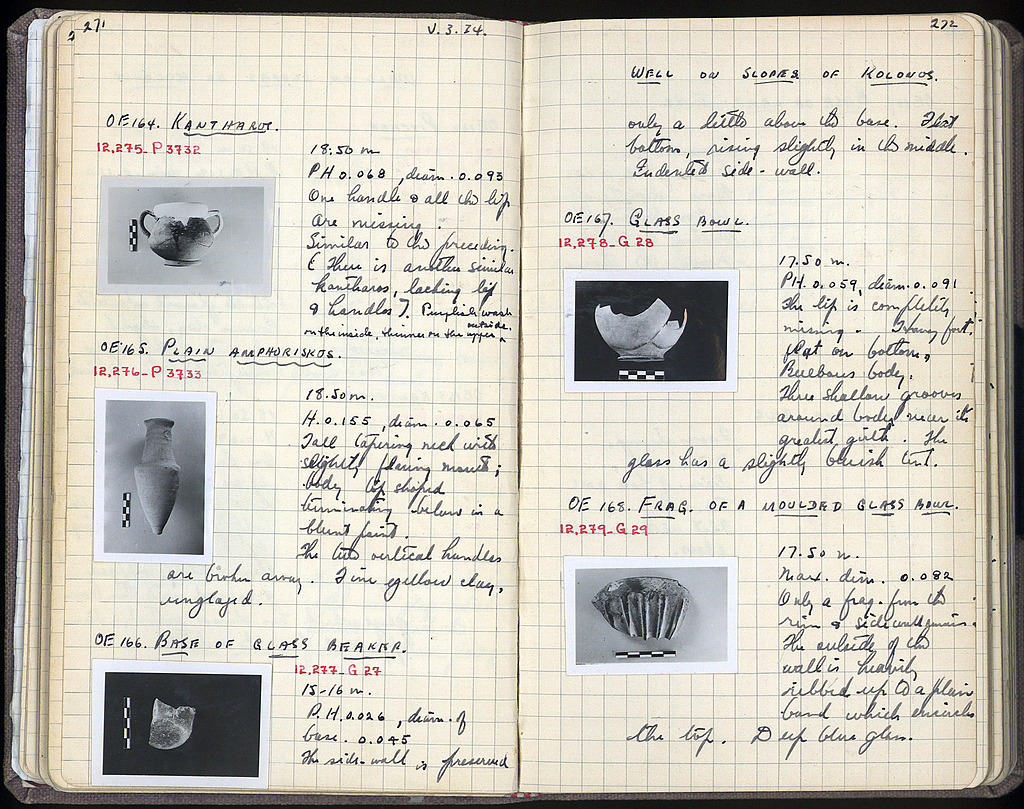 271
V.3.34.
OE164. KANTHAROS.
12,275-P 3732
18.50 m
PH 0.068, diam. 0.093
One handle & all the lip
are missing.
Similar to the preceding.
[There is another similar
kantharos, lacking lip
& handles]. Purplish wash
on the inside, thinner on the upper outside.
OE165. PLAIN AMPHORISKOS.
12,276-P3733
18.50m.
H. 0.155, diam. 0.065
Tall tapering neck with
slightly flaring mouth;
body top shaped
terminating below in a
blunt point.
The two vertical handles
are broken away. Fine yellow clay,
unglazed.
OE166. BASE OF GLASS BEAKER.
12,277-G 27
15-16 m.
P.H. 0.026, diam. of
base. 0.045
The side-wall is preserved
272
WELL ON SLOPES OF KOLONOS.
only a little above the base. Flat
bottom, rising slightly in the middle.
Indented side-wall.
OE167. GLASS BOWL.
12,278-G 28
17.50 m.
PH. 0.059, diam. 0.091
The lip is completely
missing. Heavy foot,
flat on bottom,
Bulbous body.
Three shallow grooves
around body near its
greatest girth. The
glass has a slightly bluish tint.
OE 168. FRAG. OF A MOULDED GLASS BOWL.
12,279-G29
17.50 m.
Max. dim. 0.082
Only a frag. from the
rim & side wall remains.
The outside of the
wall is heavily
ribbed up to a plain
band which encircles
the top. Deep blue glass.